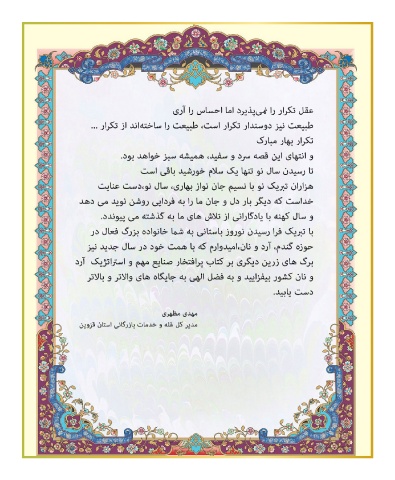 عقل تکرار را نمی‌پذیرد اما احساس را آری
طبیعت نیز دوستدار تکرار است، طبیعت را ساخته‌اند از تکرار ...
تکرار بهار مبارک
و انتهای این قصه سرد و سفید، همیشه سبز خواهد بود.
تا رسیدن سال نو تنها یک سلام خورشید باقی است
هزاران تبریک نو با نسیم جان نواز بهاری، سال نو،دست عنایت
خداست که دیگر بار دل و جان ما را به فردایی روشن نوید می دهد
و سال کهنه با یادگارانی از تلاش های ما به گذشته می پیوندد.
با تبریک فرا رسیدن نوروز باستانی به شما خانواده بزرگ فعال در
حوزه گندم، آرد و نان،امیدوارم که با همت خود در سال جدید نیز
برگ های زرین دیگری بر کتاب پرافتخار صنایع مهم و استراتژیک آرد
و نان کشور بیفزایید و به فضل الهی به جایگاه های والاتر و بالاتر
دست یابید.
مهدی مظهری
مدیر کل غله و خدمات بازرگانی استان قزوین